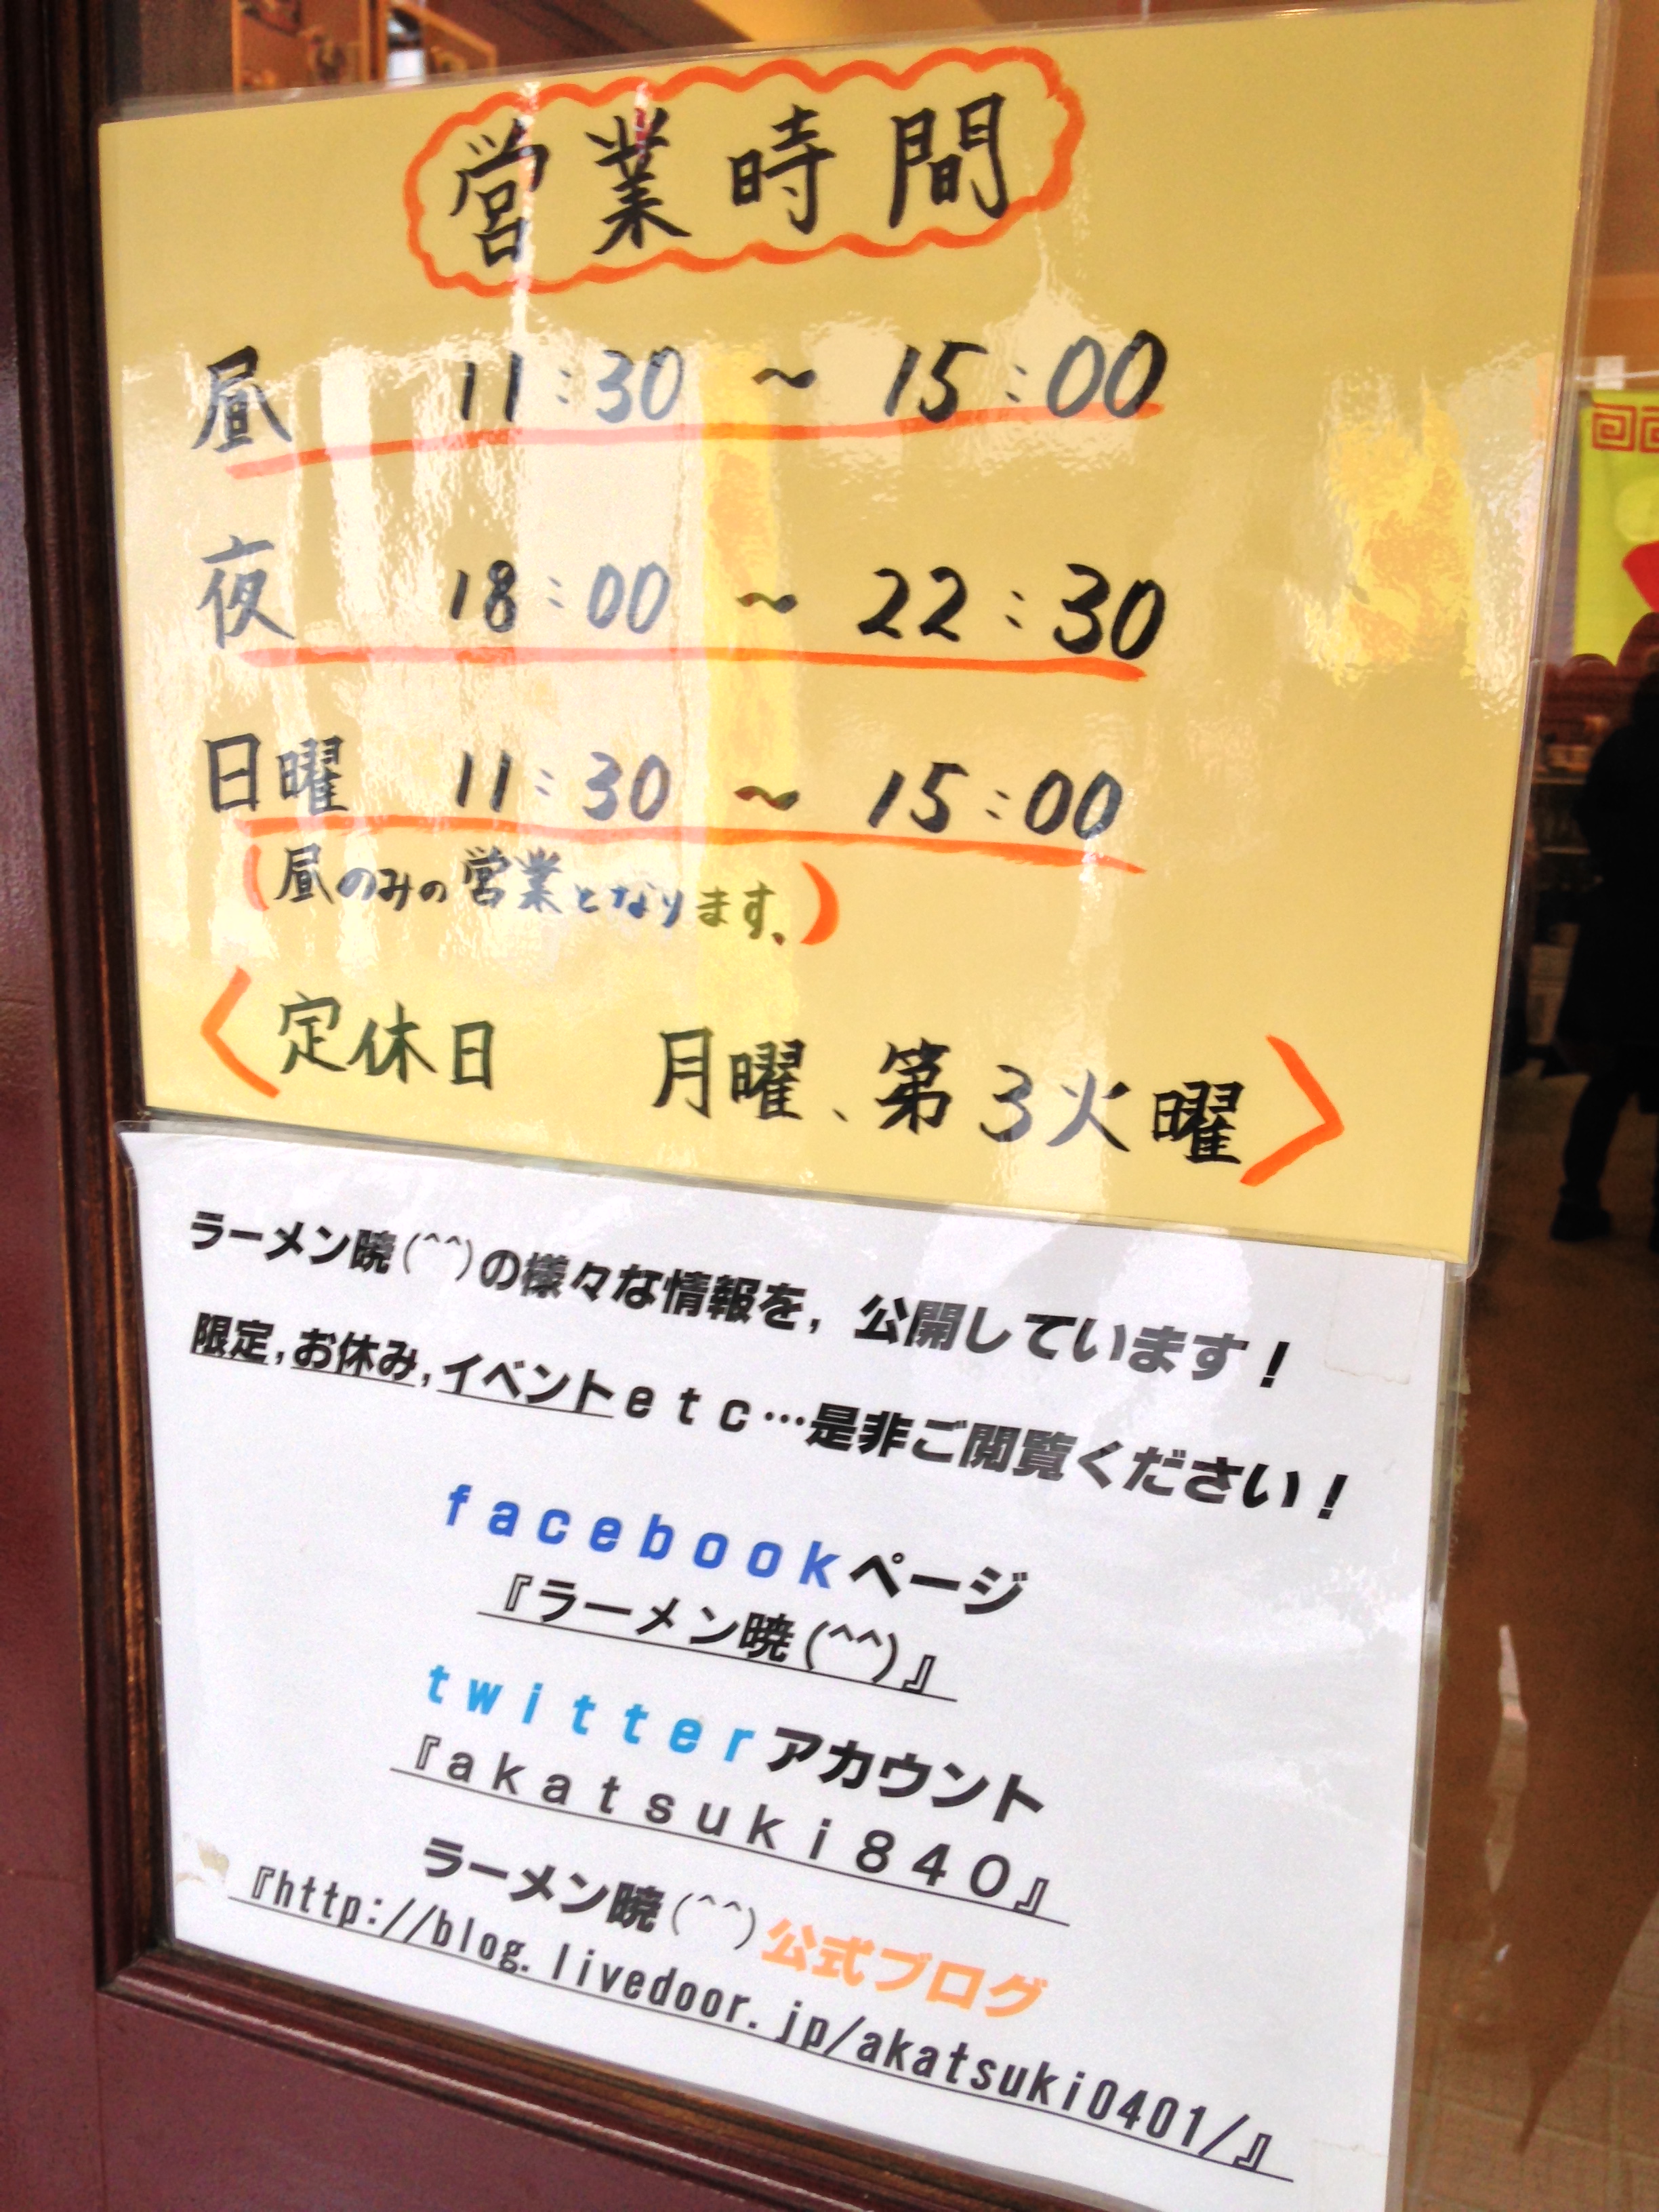 営業時間
昼 11:30 ~ 15:00
夜 18:00 ~ 22:30
日曜 11:30 ~ 15:00
(昼のみの営業となります、)
〈定休日 月曜、第3火曜〉
ラーメン暁(^^)の様々な情報を,公開しています!
限定,お休み,イベントetc…是非ご閲覧ください!
facebookページ
『ラーメン暁(^^)』
twitterアカウント
『akatsuki840』
ラーメン暁(^^)公式ブログ
『http://blog.livedoor.jp/akatsuki0401/』